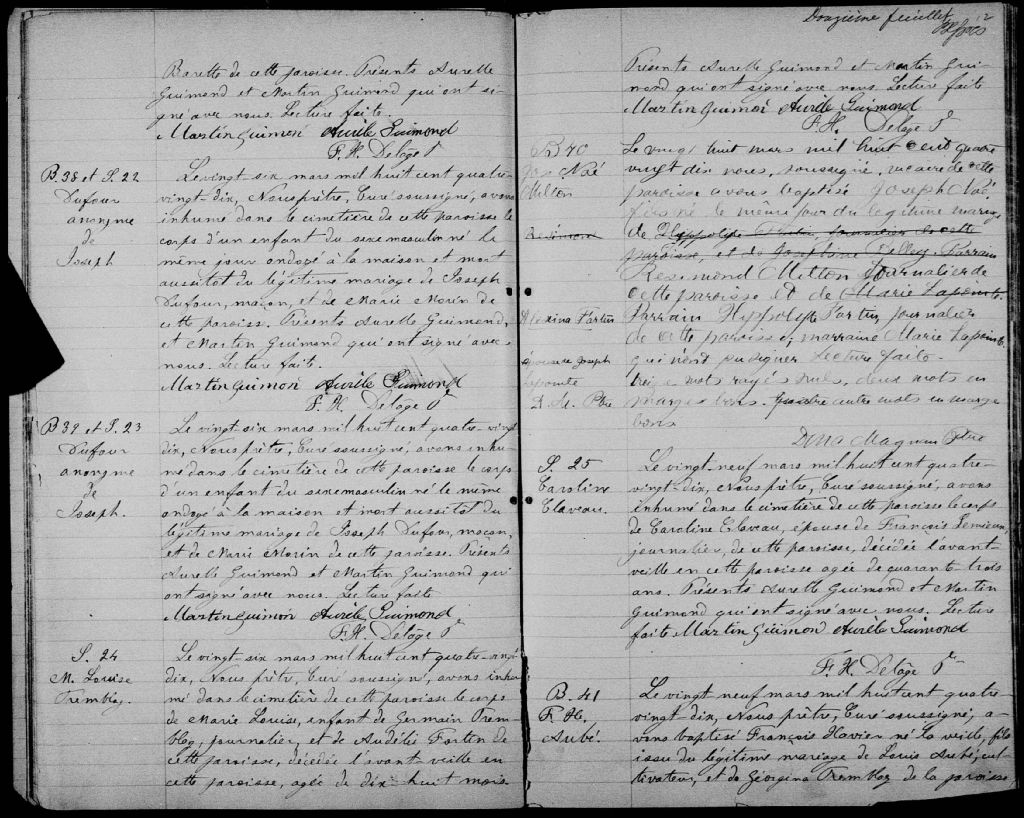 Barette de cette paroisse. Présents Aurelle
Guimond et Martin Guimond qui ont si-
gné avec nous. Lecture faite.
Martin Guimon Aurèle Guimond
F. H. Delage Ptre
B. 38 et S. 22
Dufour
anonyme
de
Joseph
Le vingt six mars mil huit cent quatre-
vingt-dix, Nous prêtre, Curé soussigné, avons
inhumé dans le cimetière de cette paroisse le
corps d'un enfant du sexe masculin né le
même jour ondoyé à la maison et mort
aussitôt du légitime mariage de Joseph
Dufour, maçon, et de Marie Morin de
cette paroisse. Présents Aurelle Guimond,
et Martin Guimond qui ont signé avec
nous. Lecture faite.
Martin Guimon Aurèle Guimond
F. H. Delâge Ptre
B 39 et S. 23
Dufour
anonyme
de
Joseph.
Le vingt-six mars mil huit cent quatre-vingt
dix, Nous prêtre, Curé soussigné, avons inhu-
mé dans le cimetière de cette paroisse le corps
d'un enfant du sexe masculin né le même
ondoyé à la maison et mort aussitôt du
légitime mariage de Joseph Dufour, maçon,
et de Marie Morin de cette paroisse. Présents
Aurelle Guimond et Martin Guimond qui
ont signé avec nous. Lecture faite
Martin Guimon Aurèle Guimond
F. H. Delâge Ptre
S. 24
M. Louise
Tremblay.
Le vingt-six mars mil huit cent quatre-vingt
dix, Nous prêtre, Curé soussigné, avons inhu-
mé dans le cimetière de cette paroisse le corps
de Marie Louise, enfant de Germain Trem-
blay, journalier, et de Audélie Fortin de
cette paroisse, décédée l'avant veille en
cette paroisse, agée de dix huit mois.
Douzième feuillet 12
Présents Aurelle Guimond et Martin Gui-
mond qui ont signé avec nous. Lecture faite
Martin Guimon Aurèle Guimond
F. H. Delage Ptre
B 40
Jos Noé
Milton
Le vingt huit mars mil huit cent quatre
vingt dix nous, soussigné, vicaire de cette
paroisse avons baptisé Joseph Noé
fils né le même jour du légitime mariage
de Hyppolyte Fortin, journalier de cette
paroisse, et de Josephine Parrain
Rosimond Milton journalier de
cette paroisse et de Marie Lapointe.
Alexina Fortin
Parrain Hyppolyte Fortin, journalier
de cette paroisse, marraine Marie Lapointe
épouse de Joseph
Lapointe
D. M. Ptre
qui n'ont pu signer Lecture faite.
treize mots rayés nuls, deux mots en
marge bons. quatre autre mots en marge
bons
Magnan Ptre
S. 25
Caroline
Claveau.
Le vingt-neuf mars mil huit cent quatre-
vingt-dix, Nous prêtre, Curé soussigné, avons
inhumé dans le cimetière de cette paroisse le corps
de Caroline Claveau, épouse de François Lemieux,
journalier, de cette paroisse, décédée l'avant-
veille en cette paroisse agée de quarante trois
ans. Présents Aurelle Guimond et Martin
Guimond qui ont signé avec nous. Lecture
faite Martin Guimon Aurèle Guimond
F. H. Delâge Ptre
B. 41
F. H.
Aubé
Le vingt neuf mars mil huit cent quatre-
vingt-dix, Nous prêtre, Curé soussigné, a-
vons baptisé François Xavier né la veille, fils
issu du légitime mariage de Louis Aubé, cul-
tivateur, et de Géorgina Tremblay de la paroisse,